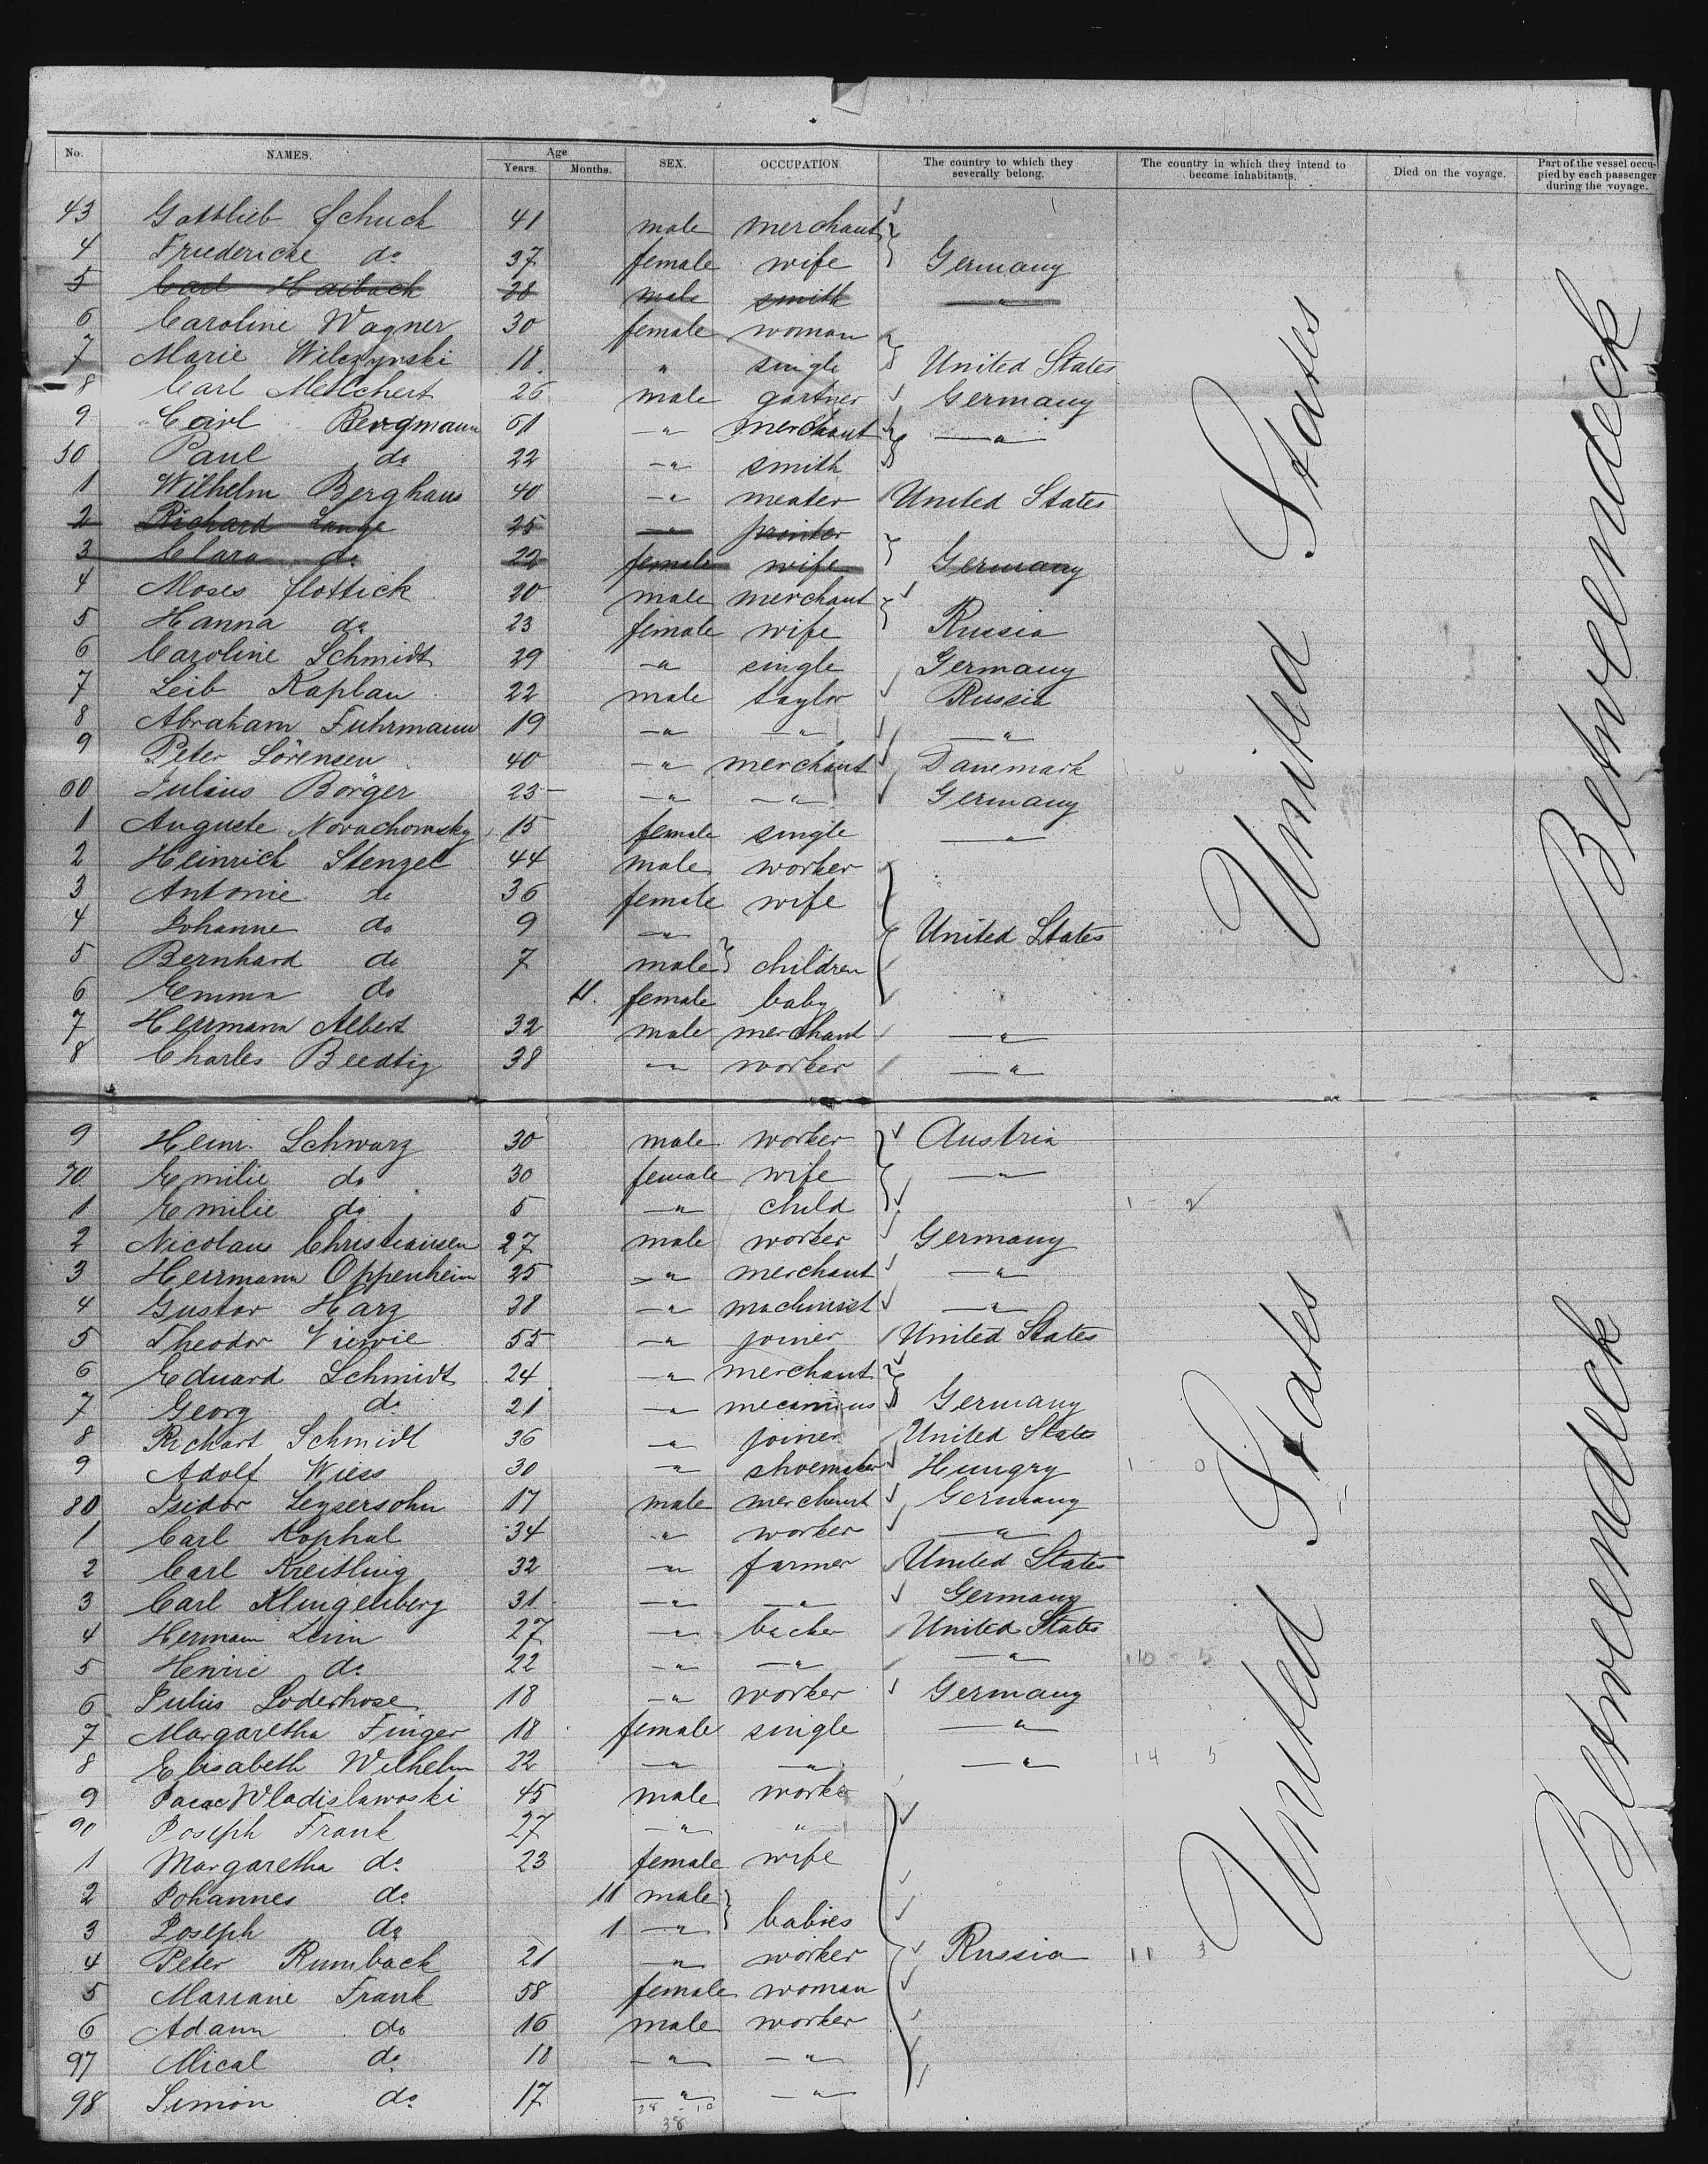 No. NAMES. Age Years. Months. SEX. OCCUPATION. The country to which they severally belong. The country in which they intend to become inhabitants. Died on the voyage. Part of the vessel occupied by each passenger during the voyage.
43 Gottlieb Schuch 41 male merchant
4 Friedericke do 37 female wife Germany
5 Carl Haibach 28 male smith "
6 Caroline Wagner 30 female woman
7 Marie Wilczynski 18 " single United States
8 Carl Melchert 26 male gartner Germany
9 Carl Bergmann 61 " merchant "
50 Paul do 22 " smith
1 Wilhelm Berghaus 40 " meater United States
2 Richard Lange 25 " printer
3 Clara do 22 female wife Germany
4 Moses Slottick 20 male merchant
5 Hanna do 23 female wife Russia
6 Caroline Schmidt 29 " single Germany
7 Leib Kaplan 22 male taylor Russia
8 Abraham Fuhrmann 19 " " "
9 Peter Sörensen 40 " merchant Danemark
60 Julius Börger 23 " " Germany
1 Auguste Novachomsky 15 female single "
2 Heinrich Stenzel 44 male worker
3 Antonie do 36 female wife
4 Johanne do 9 " United States
5 Bernhard do 7 male children
6 Emma do 11. female baby
7 Herrmann Albert 32 male merchant "
8 Charles Beedtig 38 " worker "
9 Heinr. Schwarz 30 male worker Austria
70. Emilie do 30 female wife "
1 Emilie do 5 " child
2 Nicolaus Christiansen 27 male worker Germany
3 Herrmann Oppenheim 25 " merchant "
4 Gustav Harz 28 " machinist "
5 Theodor 55 " joiner United States
6 Eduard Schmidt 24 " merchant
7 Georg do 21 " Germany
8 Richart Schmidt 36 " joiner United States
9 Adolf Wiess 30 " shoemaker Hungry
80 Isidor Leysersohn 17 male merchant Germany
1 Carl Kophal 34 " worker "
2 Carl Kreitling 32 " farmer United States
3 Carl Klingenberg 31 " " Germany
4 Hermann 27 " backer United States
5 Henrie do 22 " " "
6 Julius Loderhose 18 " worker Germany
7 Margaretha Finger 18 female single "
8 Elisabeth Wilhelm 22 " " "
9 Wladislawoski 45 male worke
90 Joseph Frank 27 " "
1 Margaretha do 23 female wife
2 Johannes do 11 male
3 Joseph do 1 " babies
4 Peter Rumback 21 " worker Russia
5 Mariane Frank 58 female woman
6 Adam do 16 male worker
97 Mical do 18 " "
98 Simon do 17 " "
38
United States
Betweendeck
United States
Betweendeck